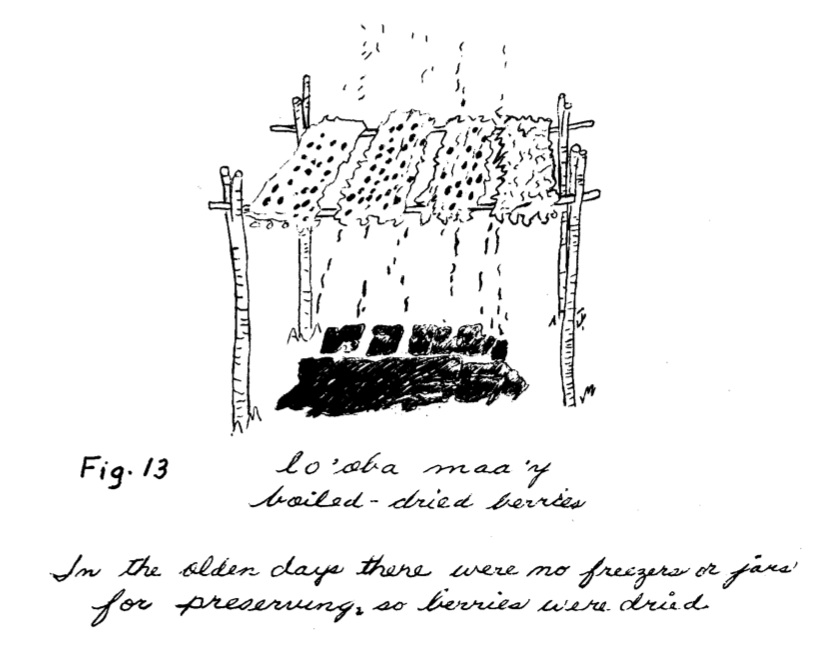 Fig. 13
lo'oba maa'y
boiled-dried berries
In the olden days there were no freezers or jars
for preserving, so berries were dried.